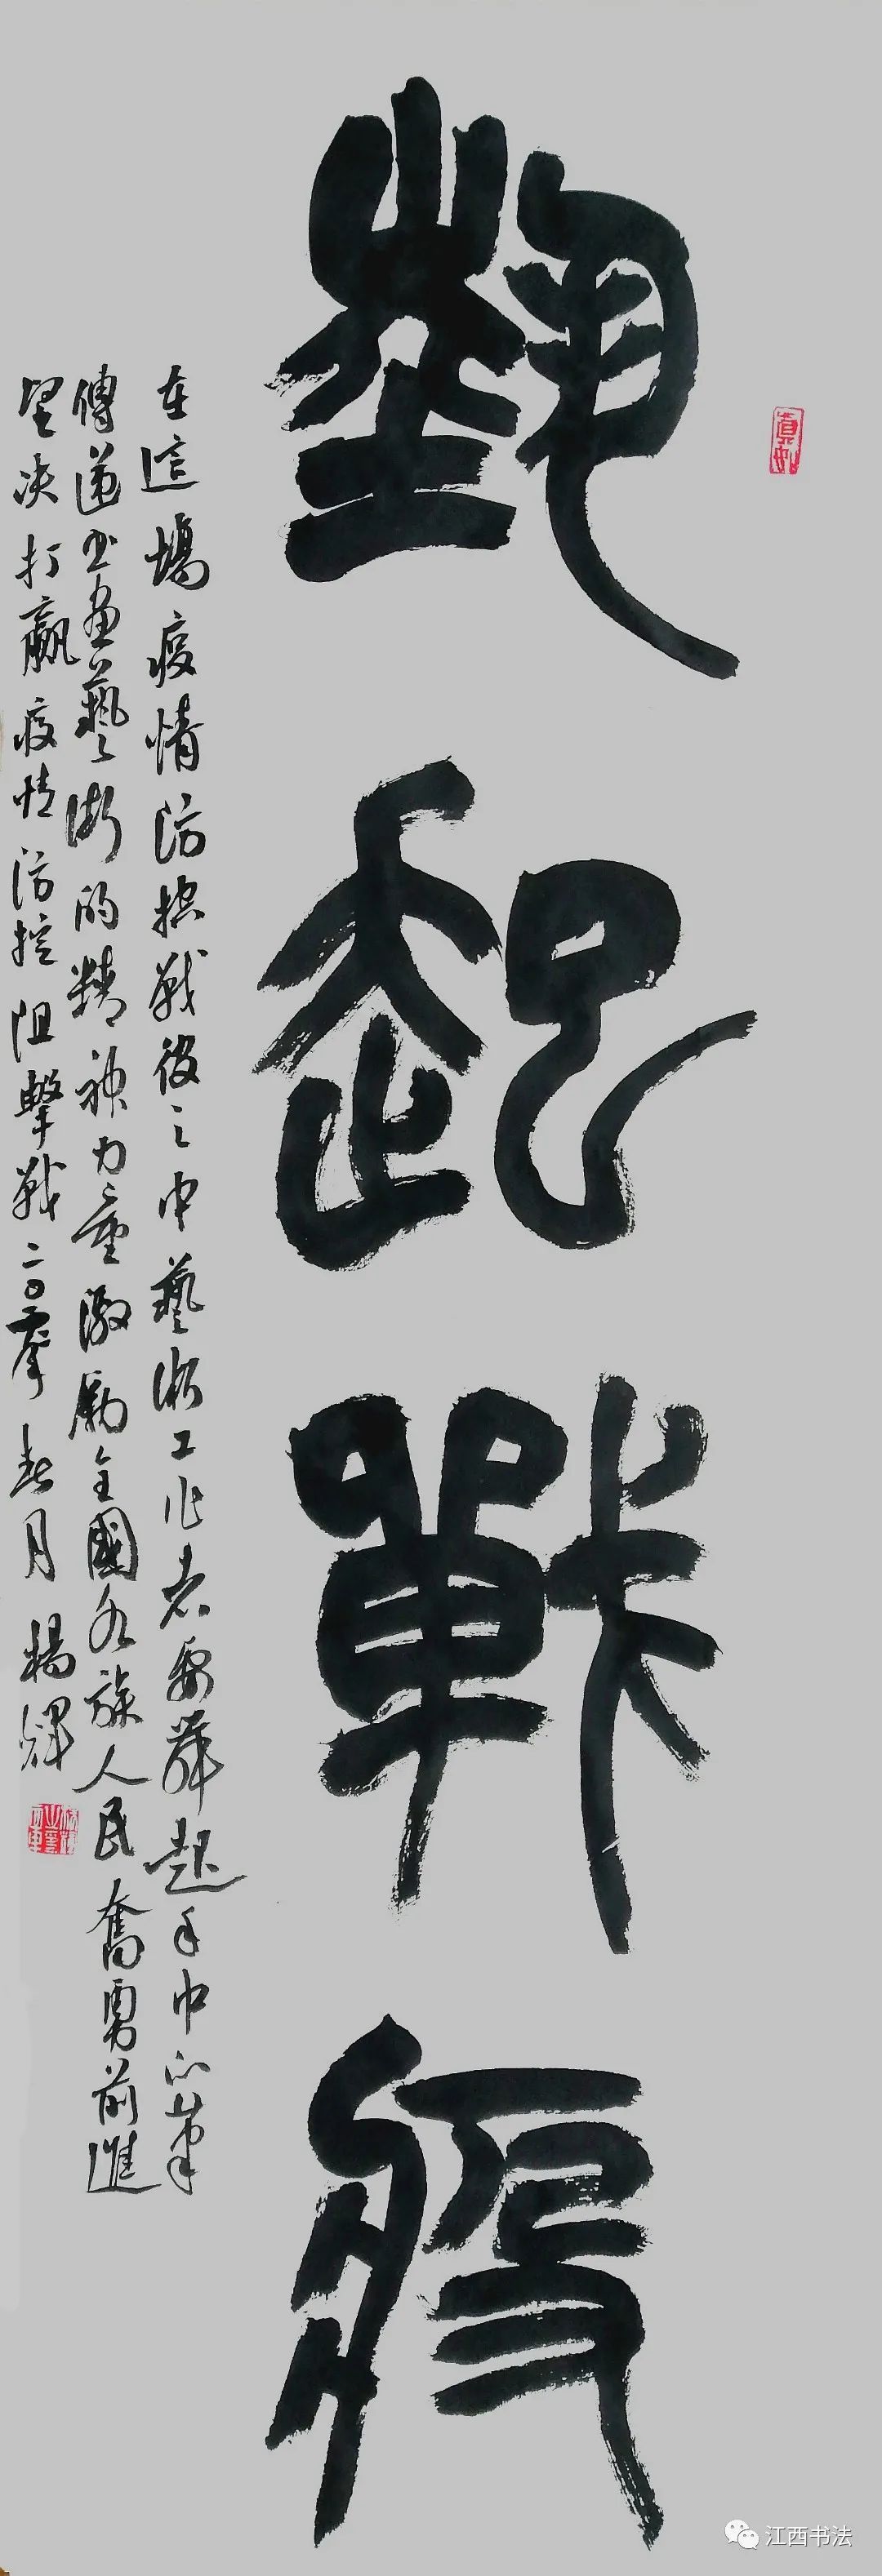 真如
埶起戰疫
在這場疫情防控戰役之中藝術工作者要舞起手中的筆
傳遞书畫藝術的精神力量激勵全國各族人民奮勇前進
坚决打赢疫情防控阻擊戰二〇二零年春月 楊輝
江西书法